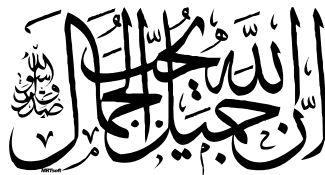 ان الله جميل يحب الجمال
صدق رسول الله
MRThoR